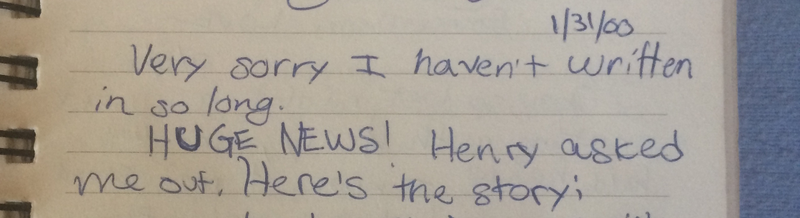 1/31/00
Very sorry I haven't written
in so long.
HUGE NEWS! Henry asked
me out. Here's the story: